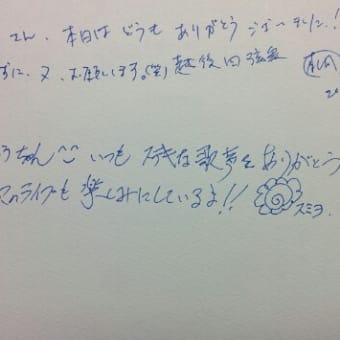 さん、本日はどうもありがとうございました!
ずに、又、お願いします。(笑) 越後
うちゃん^^ いつもステキな歌声をありがとう
のライブも楽しみにしているよ!!
スミヨ